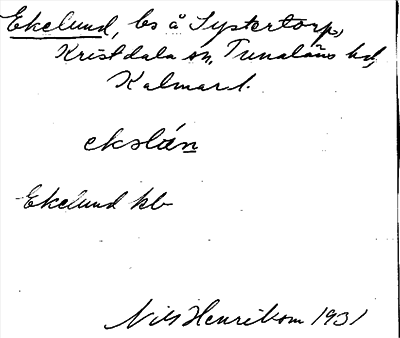 Ekelund, bs å Systertorp,
Kristdala sn, Tunaläns hd,
Kalmar l.
ekslán
Ekelund kb
Nils Henrikson 1931